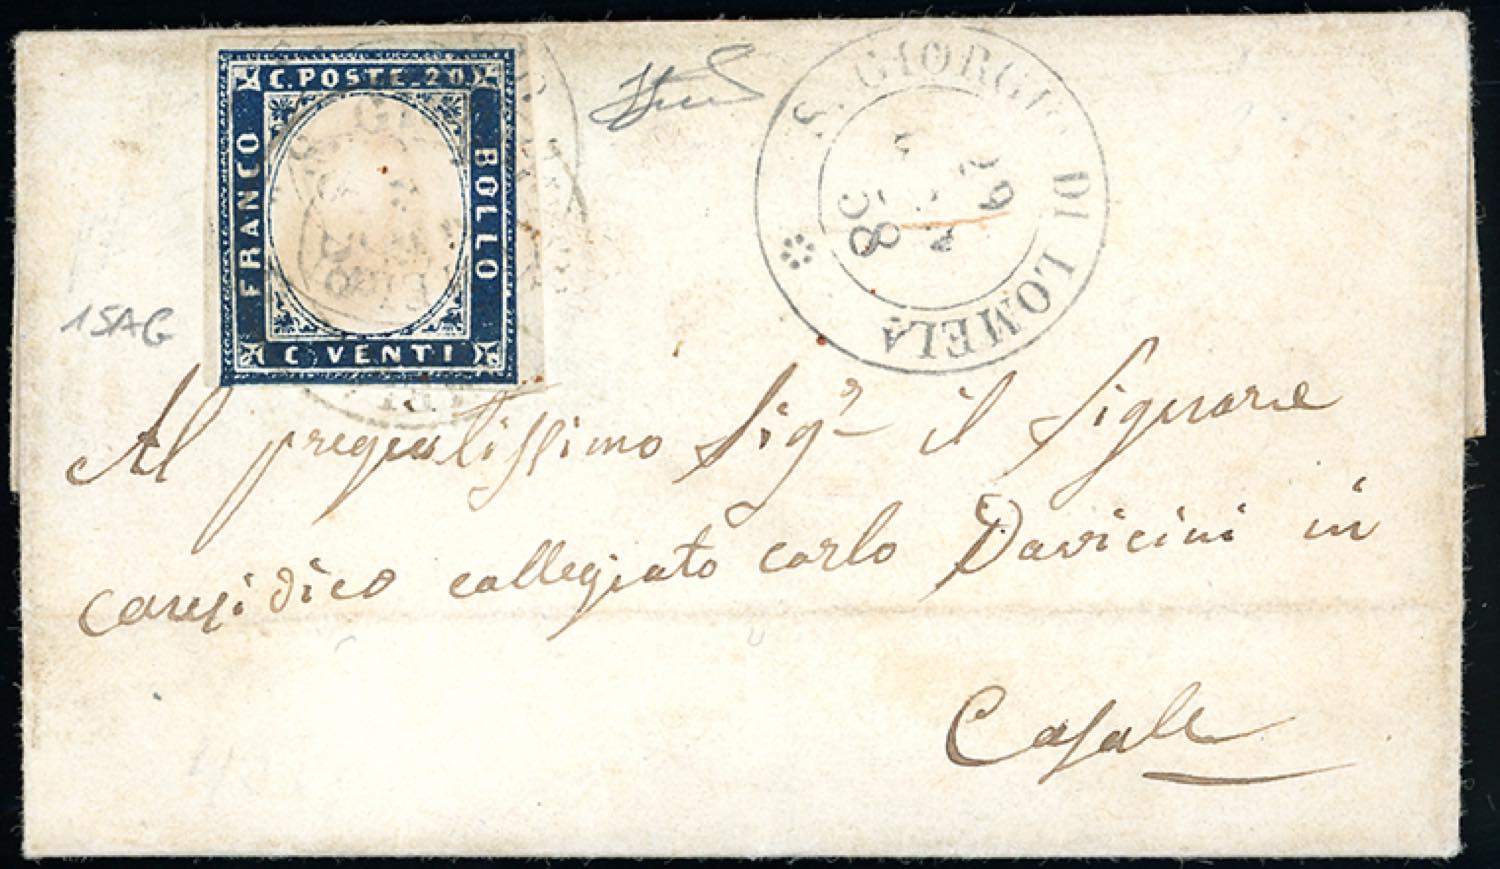 C. POSTE. 20
FRANCO
BOLLO
C VENTI
S. GIORGIO DI LOMELA
58
15AG
Al pregiatissimo Sigr il Signore
Causidico collegiato Carlo Davicini in
Casale